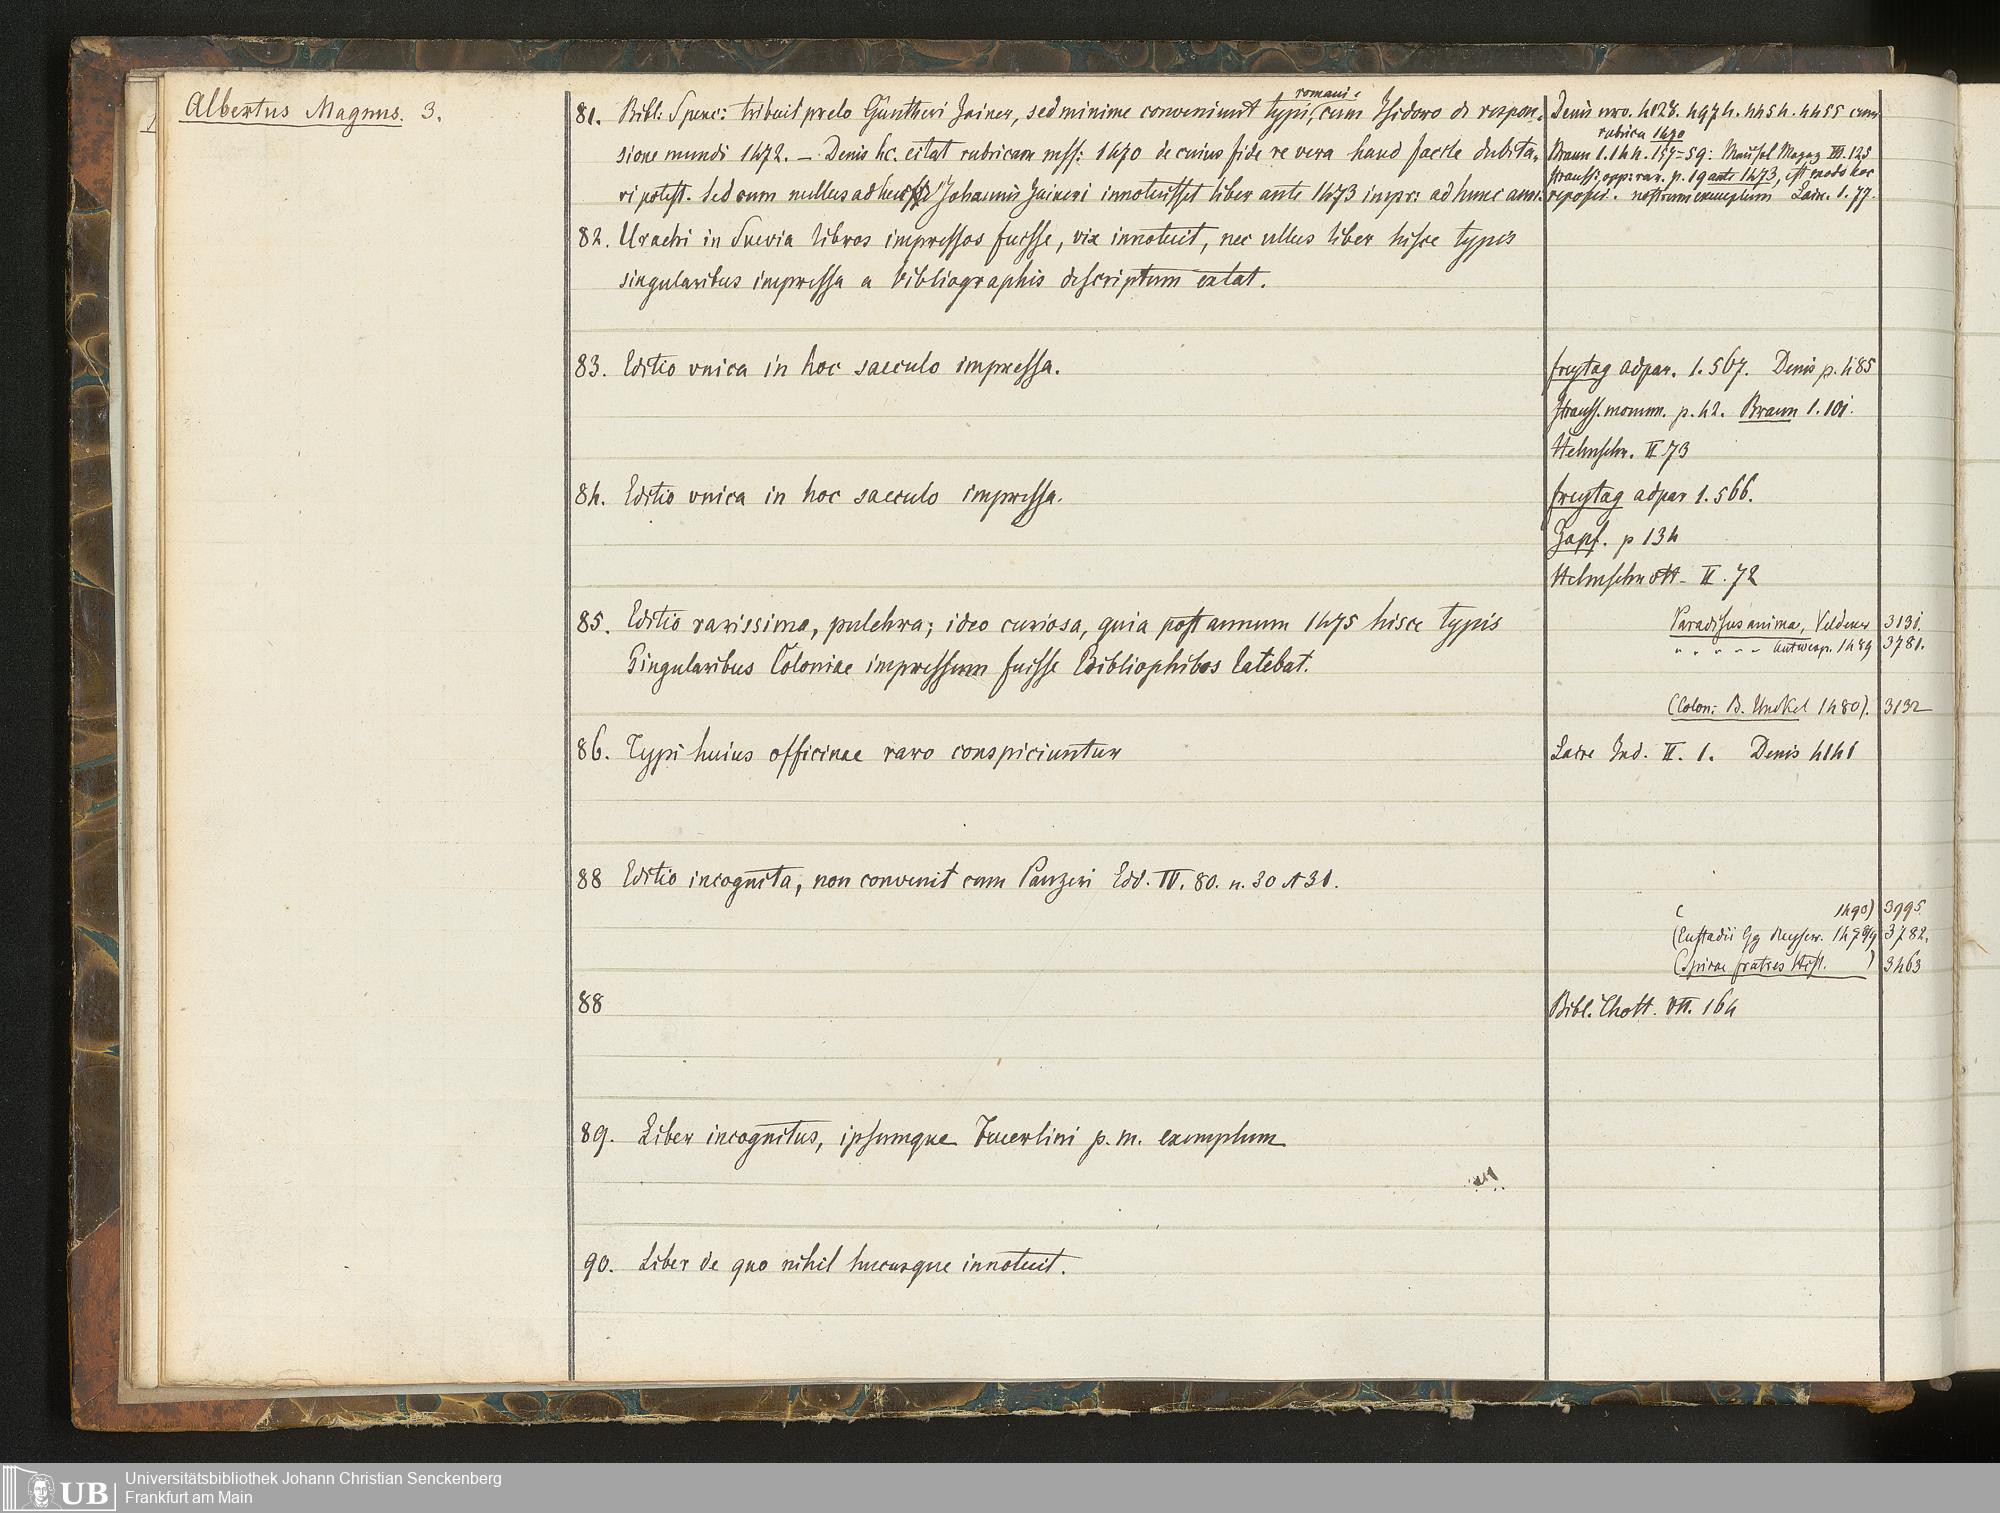 Albertus Magnus. 3.
81. Bibl: Spenc: tribuit prelo Güntheri Zainer, sed minime conveniunt typi romani: cum Isidoro de respon-
sione mundi 1472. – Denis hc. citat rubricam mss: 1470 de cuius fide re vera haud facile dubita-
ri potest. Sed cum nullus adhuc Johannis Zaineri innotuisset liber ante 1473 impr: ad hunc ann:
Denis nro. 4028. 4974. 4454. 4455 cum
rubrica 1470
Braun 1.144. 157-59: Meusel Magaz III. 125
Strauss: opp: rar. p. 19 ante 1473, est modo hoc
reposui. nostrum exemplum Laire. 1. 77.
82. Urachi in Suevia libros impressos fuisse, vix innotuit, nec ullus liber hisce typis
singularibus impressa a bibliographis descriptum extat.
83. Editio vnica in hoc saeculo impressa.
freytag adpar. 1. 567. Denis p. 485
Strauss. monum. p. 42. Braun 1. 101.
Helmschr. II 73
84. Editio vnica in hoc saeculo impressa.
freytag adpar 1. 566.
Zapf. p 134
Helmschrott- II. 72
85. Editio rarissima, pulchra; ideo curiosa, quia post annum 1475 hisce typis
Singularibus Coloniae impressum fuisse Bibliophilos latebat.
Paradisus anima, Veldener 3131.
" " " " " Antwerp. 1489 3781.
(Colon: B. Unckel 1480). 3132
86. Typi huius officinae raro conspiciuntur
Laire Ind. II. 1. Denis 4141
88 Editio incognita, non convenit cum Panzeri Edd. IV. 80. n. 30 et 31.
( 1490) 3995
(Eustadii Gg Reyser. 3782.
(Spirae fratres Hist. ) 3463
88
Bibl. Thott. VII. 164
89. Liber incognitus, ipsumque Feuerlini p. m. exemplum
90. Liber de quo nihil hucusque innotuit.
UB
Universitätsbibliothek Johann Christian Senckenberg
Frankfurt am Main